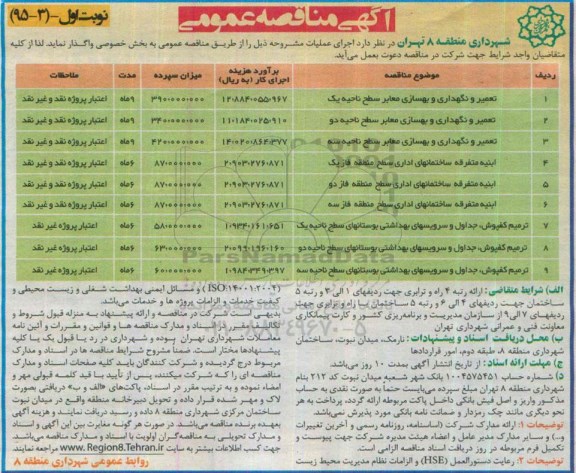 آگهی مناقصه عمومی
نوبت اول - (۳-۹۵)
شهرداری منطقه ۸ تهران در نظر دارد اجرای عملیات مشروحه ذیل را از طریق مناقصه عمومی به بخش خصوصی واگذار نماید. لذا از کلیه
متقاضیان واجد شرایط جهت شرکت در مناقصه دعوت بعمل می‌آید.
ردیف موضوع مناقصه برآورد هزینه اجرای کار (به ریال) میزان سپرده مدت ملاحظات
۱ تعمیر و نگهداری و بهسازی معابر سطح ناحیه یک ۱۲.۸۸۴.۰۵۵.۹۶۷ ۳۹۰.۰۰۰.۰۰۰ ۹ماه اعتبار پروژه نقد و غیر نقد
۲ تعمیر و نگهداری و بهسازی معابر سطح ناحیه دو ۱۱.۰۱۸۴.۰۲۵.۹۱۰ ۳۴۰.۰۰۰.۰۰۰ ۹ماه اعتبار پروژه نقد و غیر نقد
۳ تعمیر و نگهداری و بهسازی معابر سطح ناحیه سه ۱۴.۰۲۰.۸۶۴.۳۷۷ ۴۲۰.۰۰۰.۰۰۰ ۹ماه اعتبار پروژه نقد و غیر نقد
۴ ابنیه متفرقه ساختمانهای اداری سطح منطقه فاز یک ۲.۹۰۳.۲۷۶.۸۷۱ ۸۷.۰۰۰.۰۰۰ ۶ماه اعتبار پروژه غیر نقد
۵ ابنیه متفرقه ساختمانهای اداری سطح منطقه فاز دو ۲.۹۰۳.۲۷۶.۸۷۱ ۸۷.۰۰۰.۰۰۰ ۶ماه اعتبار پروژه غیر نقد
۶ ابنیه متفرقه ساختمانهای اداری سطح منطقه فاز سه ۲.۹۰۳.۲۷۶.۸۷۱ ۸۷.۰۰۰.۰۰۰ ۶ماه اعتبار پروژه غیر نقد
۷ ترمیم کفپوش، جداول و سرویسهای بهداشتی بوستانهای سطح ناحیه یک ۱.۹۳۴.۱۶۱.۶۵۱ ۵۸.۰۰۰.۰۰۰ ۶ماه اعتبار پروژه غیر نقد
۸ ترمیم کفپوش، جداول و سرویسهای بهداشتی بوستانهای سطح ناحیه دو ۲.۰۹۹.۱۹۶.۱۶۰ ۶۳.۰۰۰.۰۰۰ ۶ماه اعتبار پروژه غیر نقد
۹ ترمیم کفپوش، جداول و سرویسهای بهداشتی بوستانهای سطح ناحیه سه ۱.۹۸۴.۳۴۹.۳۹۷ ۶۰.۰۰۰.۰۰۰ ۶ماه اعتبار پروژه غیر نقد
ParsNamadData
الف) شرایط متقاضی: ارائه رتبه ۴ راه و ترابری جهت ردیفهای ۱ الی ۳ و رتبه ۵
ساختمان جهت ردیفهای ۴ الی ۶ و رتبه ۵ ساختمان یا راه و ترابری جهت
ردیفهای ۷ الی ۹ از سازمان مدیریت و برنامه‌ریزی کشور و کارت پیمانکاری
معاونت فنی و عمرانی شهرداری تهران
ب) محل دریافت اسناد و پیشنهادات: نارمک، میدان نبوت، ساختمان
شهرداری منطقه ۸، طبقه دوم، امور قراردادها
ج) مهلت ارائه اسناد: از تاریخ انتشار آگهی بمدت ۱۰ روز می‌باشد.
د) شماره حساب ۱۰۰۴۵۷۵۴۵۱ بانک شهر شعبه میدان نبوت کد ۲۱۲ بنام
شهرداری منطقه ۸ تهران آماده سپرده می‌بایست حتما به صورت نقدی به حساب
مذکور واریز و اصل فیش بانکی داخل پاکت مربوطه ارائه گردد، پرداخت به هر
نحو دیگری مانند چک رمزدار و ضمانت نامه بانکی مورد پذیرش نمی‌باشد.
توضیحات ۱: ارائه مدارک شرکت (اساسنامه، روزنامه رسمی و آخرین تغییرات
و..) و سایر مدارک مدیر عامل و اعضاء هیئت مدیره شرکت جهت پیوست و
تکمیل فرم مربوطه در روز دریافت اسناد مناقصه الزامی است.
توضیحات ۲: رعایت دستورالعمل (HSE) و الزامات نظام مدیریت محیط زیست
(ISO:۱۴۰۰۱:۲۰۰۴) و مسائل ایمنی بهداشت شغلی و زیست محیطی و
کیفیت خدمات و الزامات پروژه ها و خدمات می‌باشد.
بدیهی است شرکت در مناقصه و ارائه پیشنهاد به منزله قبول شروط و
تکالیف مقرر در اسناد و مدارک مناقصه ها و قوانین و مقررات و آئین نامه
معاملات شهرداری تهران بوده و شهرداری در رد یا قبول یک یا کلیه
پیشنهادها مختار است. ضمنا مشروح شرایط مناقصه ها در اسناد و مدارک
مربوط درج گردیده و شرکت کنندگان باید کلیه صفحات اسناد و مدارک
مناقصه ای را که شرکت میکنند، پس از تأیید با قید کلمه قبولی مهر و
امضاء نموده و به ترتیب مقرر در اسناد، پاکت‌های «الف و ب» دریافتی بصورت
لاک و مهر شده قرار داده و تحویل دبیرخانه منطقه واقع در میدان نبوت
ساختمان مرکزی شهرداری منطقه ۸ داده و رسید دریافت نمایند و هزینه آگهی
بعهده برنده مناقصه می‌باشد. در صورت هر گونه مغایرت بین این آگهی و اسناد
و مدارک تحویلی به مناقصه‌گران اولویت با اسناد و مدارک مناقصه می‌باشد.
جهت کسب اطلاعات بیشتر به سایت www.Region8.Tehran.ir مراجعه نمایند.
روابط عمومی شهرداری منطقه ۸